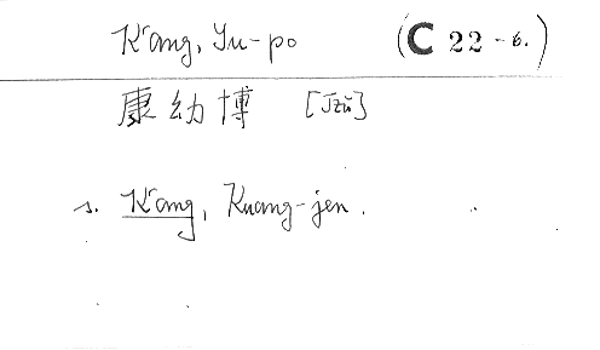 K'ang, Yu-po (C 22-6.)
康幼博 [Tzŭ]
s. K'ang, Kuang-jen.